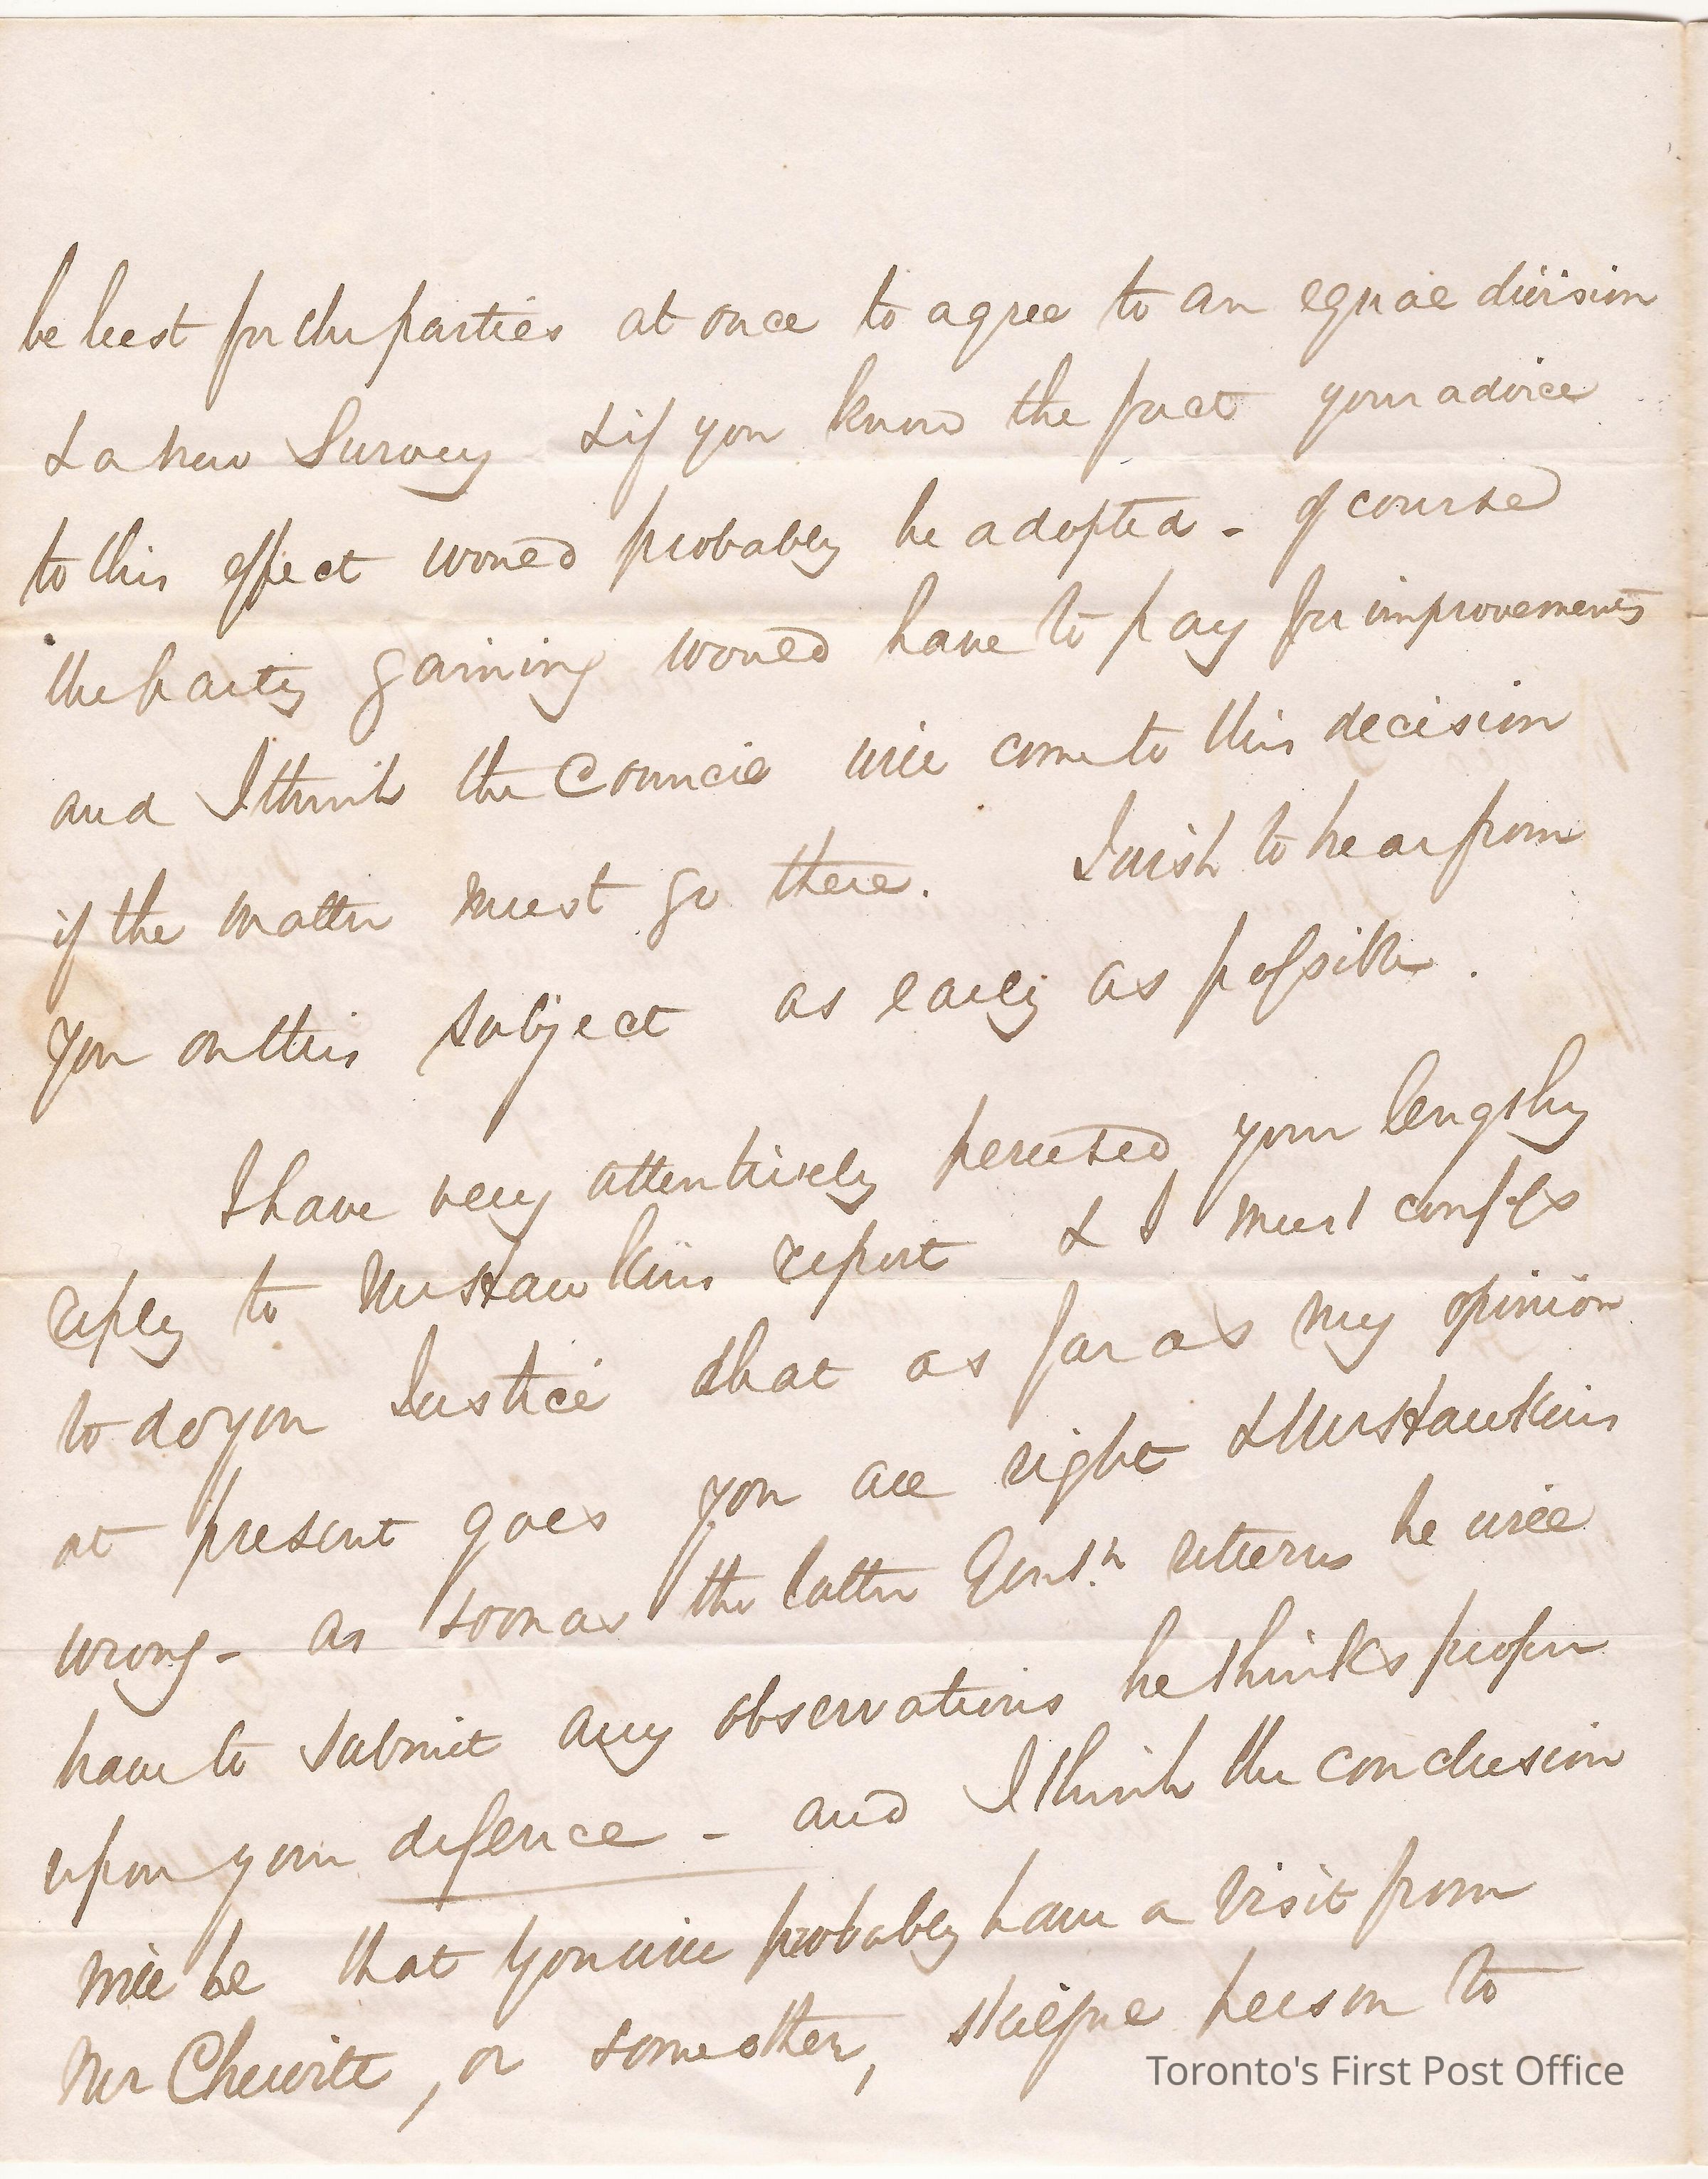 be best for the parties at once to agree to an equal division
& a new Survey & if you know the fact your advice
to this effect would probably be adopted - of course
the party gaining would have to pay for improvements
and I think the Council will come to this decision
if the matter must go there. I wish to hear from
you on this subject as early as possible.
I have very attentively perused your lengthy
reply to Mr Hawkins report & I must confess
to do you Justice that as far as my opinion
at present goes you are right & Mr Hawkins
wrong - as soon as the latter Gent.n returns he will
have to submit any observations he thinks proper
upon your defence - and I think the conclusion
will be that you will probably have a visit from
Mr Chewitt, or some other, skilful person to
Toronto's First Post Office